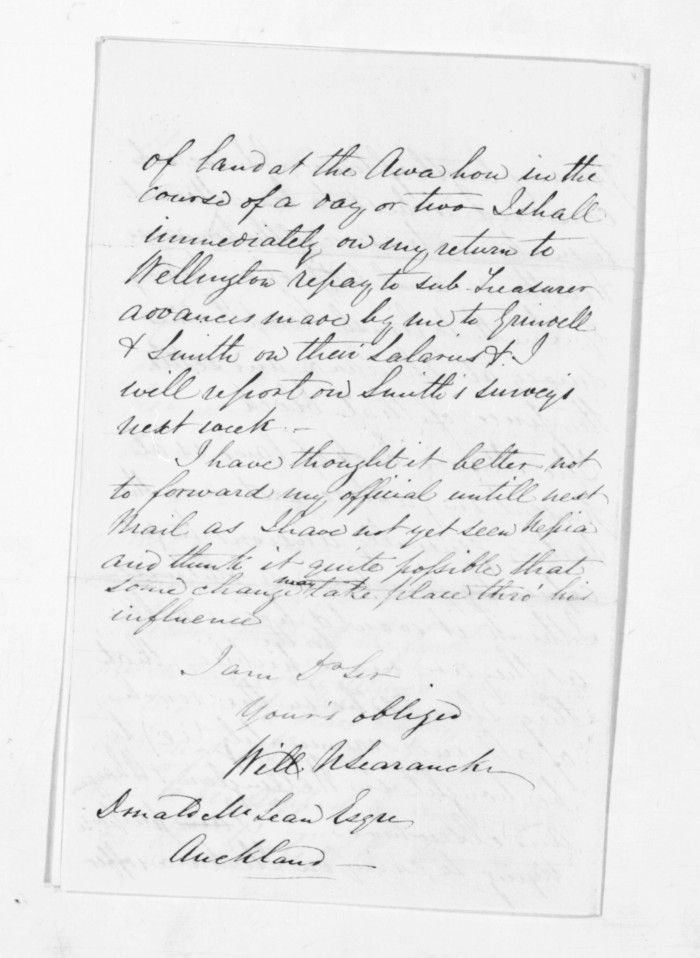 of land at the Awa hou in the
course of a day or two I shall
immediately on my return to
Wellington repay to sub-Treasurer
advances made by me to Grindell
& Smith on their Salaries &. I
will report on Smith's surveys
next week. -
I have thought it better not
to forward my official untill next
Mail as I have not yet seen Nepia
and think it quite possible that
some change may take place thro' his
influence
I am Dr Sir
Your's obliged
Will N Searancke
Donald McLean Esqre
Auckland -